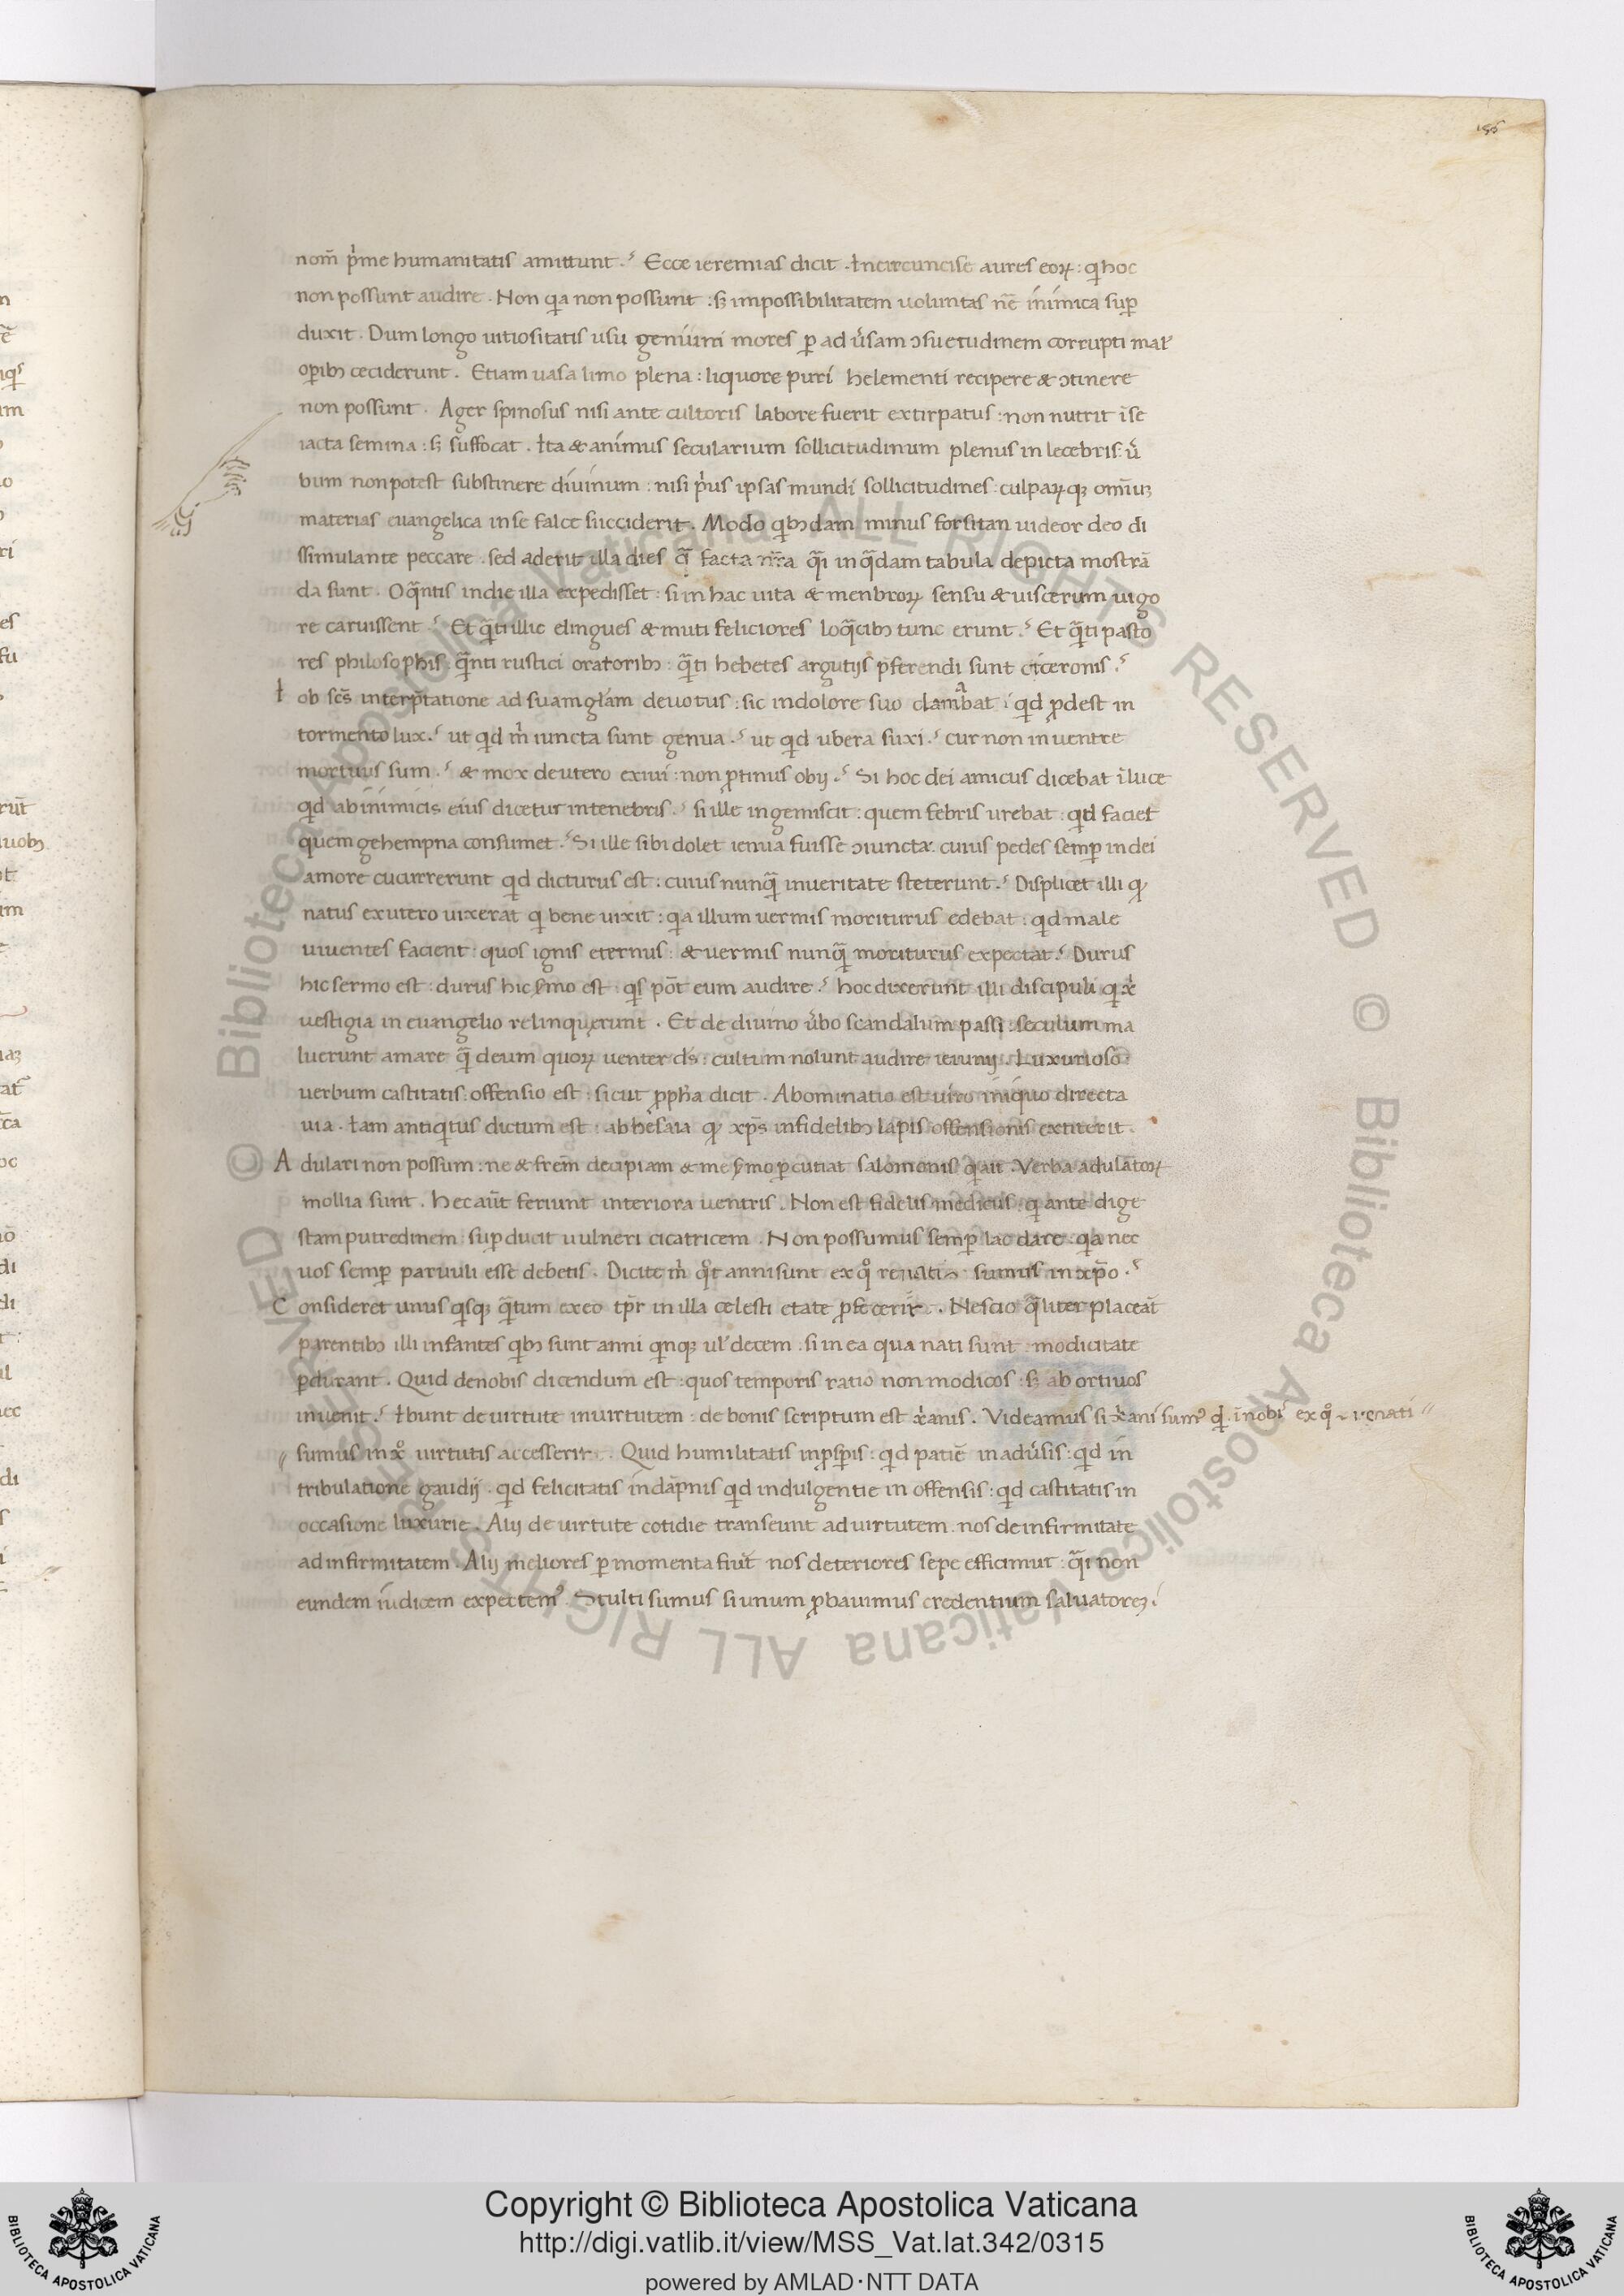 156
nom̄ p̓me humanitatis amittunt .ˀ Ecce ieremias dicit . Incircuncise aures eoꝝ : qͥ hoc
non possunt audire . Non qͥa non possunt : sꝫ impossibilitatem uoluntas nr̄e inimica suꝑ
duxit . Dum longo uitiositatis usu genuini mores ꝑ aduˀsam ꝯsuetudinem corrupti mal̓
oꝑibꝫ ceciderunt . Etiam uasa limo plena : liquore puri helementi recipere & ꝯtinere
non possunt . Ager spinosus nisi ante cultoris labore fuerit extirpatus : non nutrit ī se
iacta semina : sꝫ suffocat . Ita & animus secularium sollicitudinum plenus inlecebris : uˀ
bum non potest substinere diuinum : nisi pͥus ipsas mundi sollicitudines : culpaꝝqꝫ om̄iuꝫ
materias euangelica in se falce succiderit . Modo qͥbꝫdam minus forsitan uideor deo di
ssimulante peccare . sed aderit illa dies qͣ facta nr̄a qͣi in qͣdam tabula depicta mostrā
da sunt . O qͣntis in die illa expedisset : si in hac uita & menbroꝝ sensu & uiscerum uigo
re caruissent .ˀ Et qͣti illic elingues & muti feliciores loqͣcibꝫ tunc erunt .ˀ Et qͣti pasto
res philosophis : qͣnti rustici oratoribꝫ : qͣti hebetes argutijs p̄ferendi sunt ciceronis .ˀ
I ob sc̄s interp̄tatione ad suam gl̄am deuotus : sic in dolore suo clamabat : qͥd ꝓdest in
tormento lux .ˀ ut qͥd mͥ iuncta sunt genua .ˀ ut qͥd ubera suxi .ˀ cur non in uentre
mortuus sum .ˀ & mox de utero exiui : non ꝓtinus obij .ˀ Si hoc dei amicus dicebat ī luce
qͥd ab inimicis eius dicetur in tenebris .ˀ si ille ingemiscit : quem febris urebat : qͥd faciet
quem gehempna consumet .ˀ Si ille sibi dolet ienua fuisse ꝯiuncta : cuius pedes semꝑ in dei
amore cucurrerunt qͥd dicturus est : cuius nunqͣ in ueritate steterunt .ˀ Displicet illi qͩ
natus ex utero uixerat qͥ bene uixit : qͥa illum uermis moriturus edebat : qͥd male
uiuentes facient : quos ignis eternus : & uermis nunqͣ moriturus expectat .ˀ Durus
hic sermo est : durus hic s̓mo est : qͥs pōt eum audire .ˀ hoc dixerunt illi discipuli qͥ xͥ
uestigia in euangelio relinquerunt . Et de diuino uˀbo scandalum passi : seculum ma
luerunt amare qͣ deum quoꝝ uenter ds̄ : cultum nolunt audire ieiunij . Luxurioso
uerbum castitatis : offensio est : sicut ꝓpha dicit . Abominatio est uiro iniquo directa
uia . Iam antiqͥtus dictum est : ab hesaia qͩ xp̄s infidelibꝫ lapis offensionis extiterit .
A dulari non possum : ne & frem̄ decipiam & me s̓mo ꝑcutiat salomonis qͥ ait . Verba adulatoꝝ
mollia sunt . Hec aut̄ feriunt interiora uentris . Non est fidelis medicus : qͥ ante dige
stam putredinem : suꝑducit uulneri cicatricem . Non possumus semꝑ lac dare : qͥa nec
uos semꝑ paruuli esse debetis . Dicite mͥ qͦt anni sunt ex qͦ renati sumus in xp̄o .ˀ
C onsideret unus qͥsqꝫ qͣtum ex eo tp̄r in illa celesti etate ꝓfecerit . Nescio qͣliter placeāt
parentibꝫ illi infantes qͥbꝫ sunt anni qͥnqꝫ ul̓ decem . si in ea qua nati sunt : modicitate
ꝑdurant . Quid de nobis dicendum est : quos temporis ratio non modicos : sꝫ abortiuos
inuenit .ˀ Ibunt de uirtute in uirtutem : de bonis scriptum est xͥanis . Videamus si xͥani sumꝰ qͥd in nobis ex qͦ renati //
// sumus in xͦ uirtutis accesserit . Quid humilitatis in ꝓsꝑis : qͥd patiē in aduˀsis : qͥd in
tribulatione gaudij . qͥd felicitatis in dāpnis qͥd indulgentie in offensis : qͥd castitatis in
occasione luxurie . Alij de uirtute cotidie transeunt ad uirtutem . nos de infirmitate
ad infirmitatem . Alij meliores ꝑ momenta fiut̄ nos deteriores sepe efficimur : qͣi non
eundem iudicem expectemꝰ . Stulti sumus si unum ꝓbauimus credentium saluatoreꝫ :
© Biblioteca Apostolica Vaticana ALL RIGHTS RESERVED © Biblioteca Apostolica Vaticana ALL RIGHTS RESERVED
Copyright © Biblioteca Apostolica Vaticana
http://digi.vatlib.it/view/MSS_Vat.lat.342/0315
powered by AMLAD·NTT DATA
BIBLIOTECA APOSTOLICA VATICANA
BIBLIOTECA APOSTOLICA VATICANA